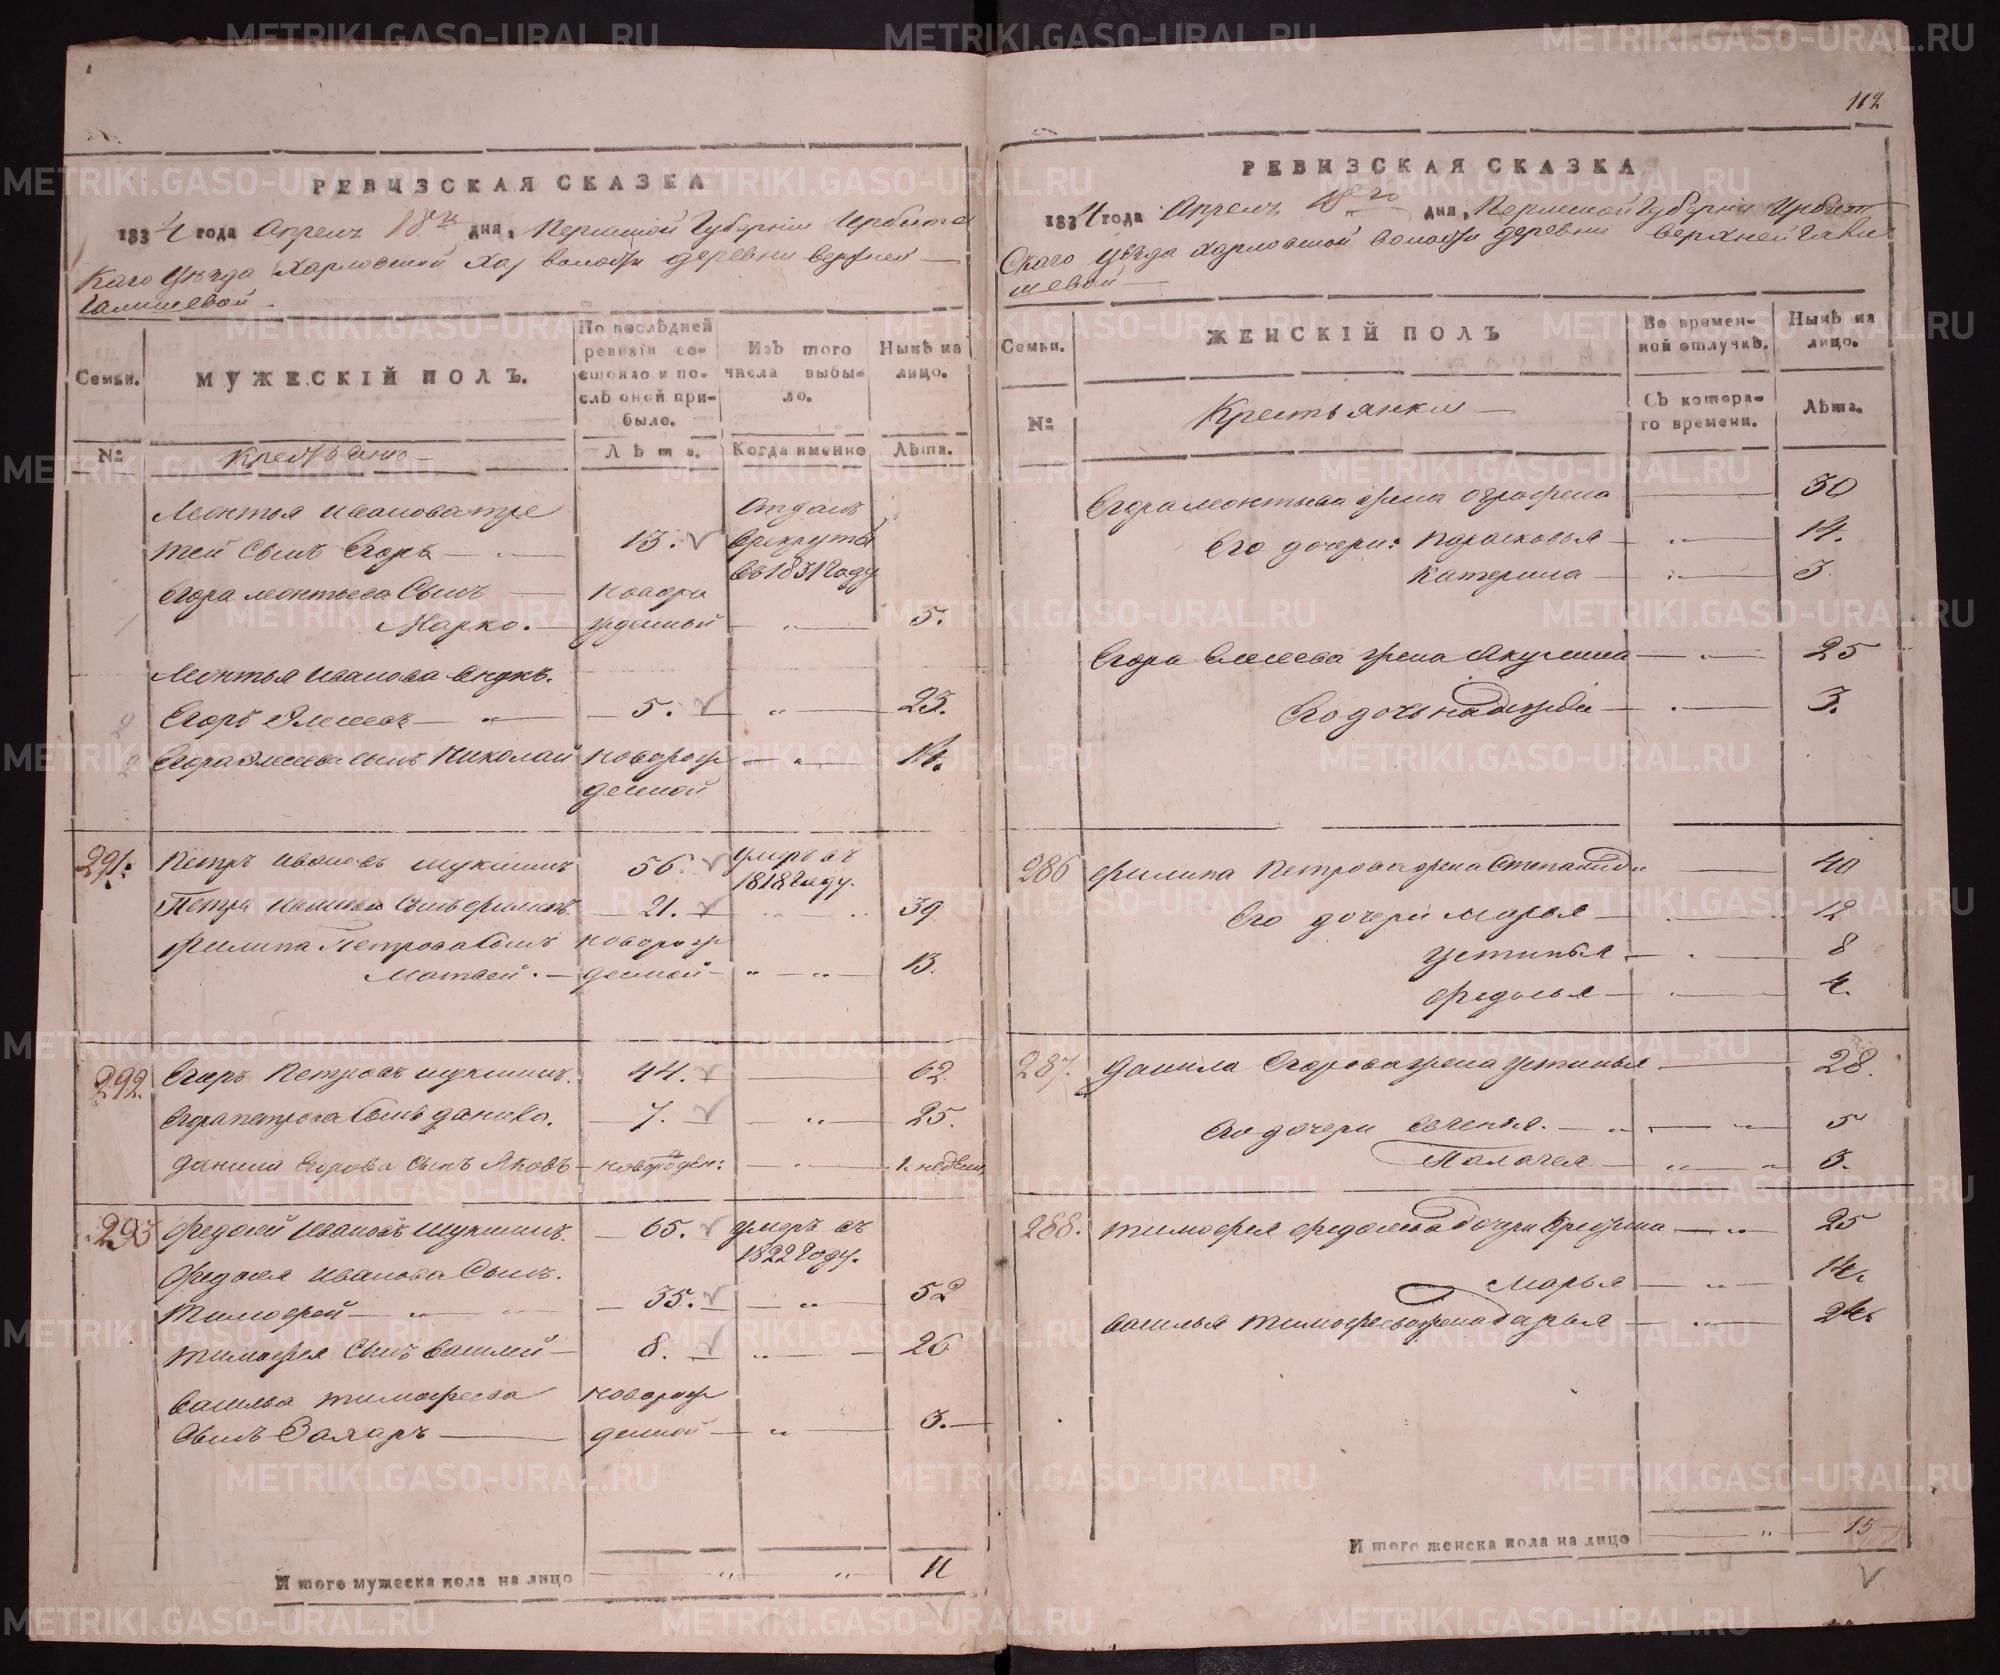 162
РЕВИЗСКАЯ СКАЗКА
1834 года Апреля 18го дня, Пермской Губернии Ирбитс
Каго уѣзда Харловской волости деревни верхней
Галишевой
Семьи.
МУЖЕСКІЙ ПОЛЪ.
По послѣдней ревизіи состояло и послѣ оной прибыло.
Изъ того числа выбыло.
Нынѣ на лицо.
№
Крестьяно
Лѣта.
Когда именно
Лѣта.
Леонтья Иванова тре
тей сынъ Егоръ 13. Отданъ врекруты въ 1831 году
Егора Леонтьева Сынъ новоро
Марко. жденный 5.
Леонтья Иванова внукъ.
Егоръ Елисеевъ 5. 23.
Егора Елисеева сынъ Николай новорож
денной
291. Петръ Ивановъ Шукшинъ 56. умеръ въ
1818 году.
Петра Иванова Сынъ Филипъ 21. 39
Филипа Петрова Сынъ новорож
Матвей. денной 13.
292. Егоръ Петровъ Шукшинъ. 44. 62.
Егора петрова Сынъ данило. 7. 25.
данила Егорова Сынъ Яковъ новорожден: 1. недели
293 Федосей Ивановъ Шукшинъ. 65. умеръ въ
1822 году.
Федосея Иванова Сынъ.
Тимофей 35. 52
Тимофея Сынъ василей 8. 26
василья тимофеева новорож
Сынъ Захаръ денной 3.
Итого мужеска пола на лицо 11
РЕВИЗСКАЯ СКАЗКА
1834 года Апреля 18го дня, Пермской Губернии Ирбит
Скаго уѣзда Харловской волости деревни верхней Гали
шевой
Семьи.
ЖЕНСКІЙ ПОЛЪ
Во временной отлучкѣ.
Нынѣ на лицо.
№
Крестьянки
Съ котораго времени.
Лѣта.
Егора Леонтьева жена Ографена 30
Его дочери: Парасковья 14.
Катерина 3.
Егора Елисеева жена Акулина 25
Его дочь надежда 3.
286 Филипа Петрова жена Степанида 40
Его дочери Марья 12
Устинья 8
Федосья 4.
287. Данила Егорова жена Устинья 28.
Его дочери Евгенья. 5
Палагея 3.
288. Тимофея Федосеева дочери 25
Марья 14.
василья Тимофеева жена Дарья 24.
Итого женска пола на лицо 15